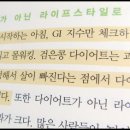 가 아닌 라이프스타일로
시작하는 아침, GI 지수만 체크하
고 꿀워킹. 검은콩 다이어트는 고
해서 살이 빠진다는 점에서 다이
트. 또한 다이어트가 아닌 라이
가 크다. 많은 사람들이